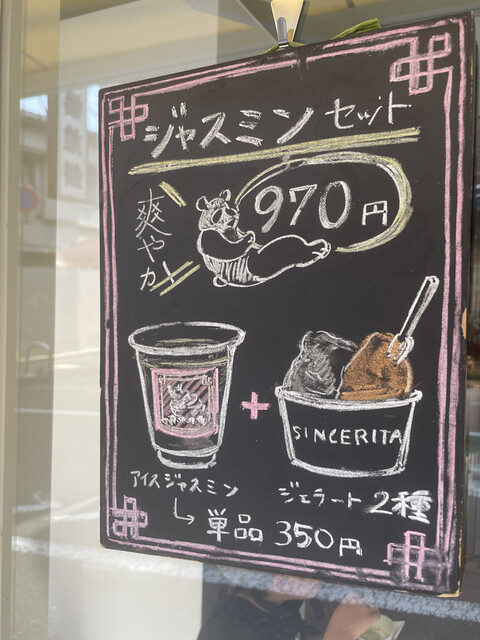 ジャスミンセット
970円
爽やか
SINCERITA
アイスジャスミン
ジェラート2種
↳単品 350円